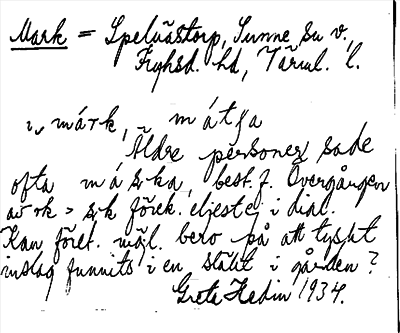 Mark = Spelnästorp, Sunne, su v.,
Fryksd. hd, Värml. l.
iv márk, mátsa
Äldre personer sade
ofta máska, best. f. Övergången
av rk > sk förek. eljest ej i dial.
Kan föret. möjl. bero på att tyskt
inslag funnits i en släkt i gården?
Greta Hedin 1934.